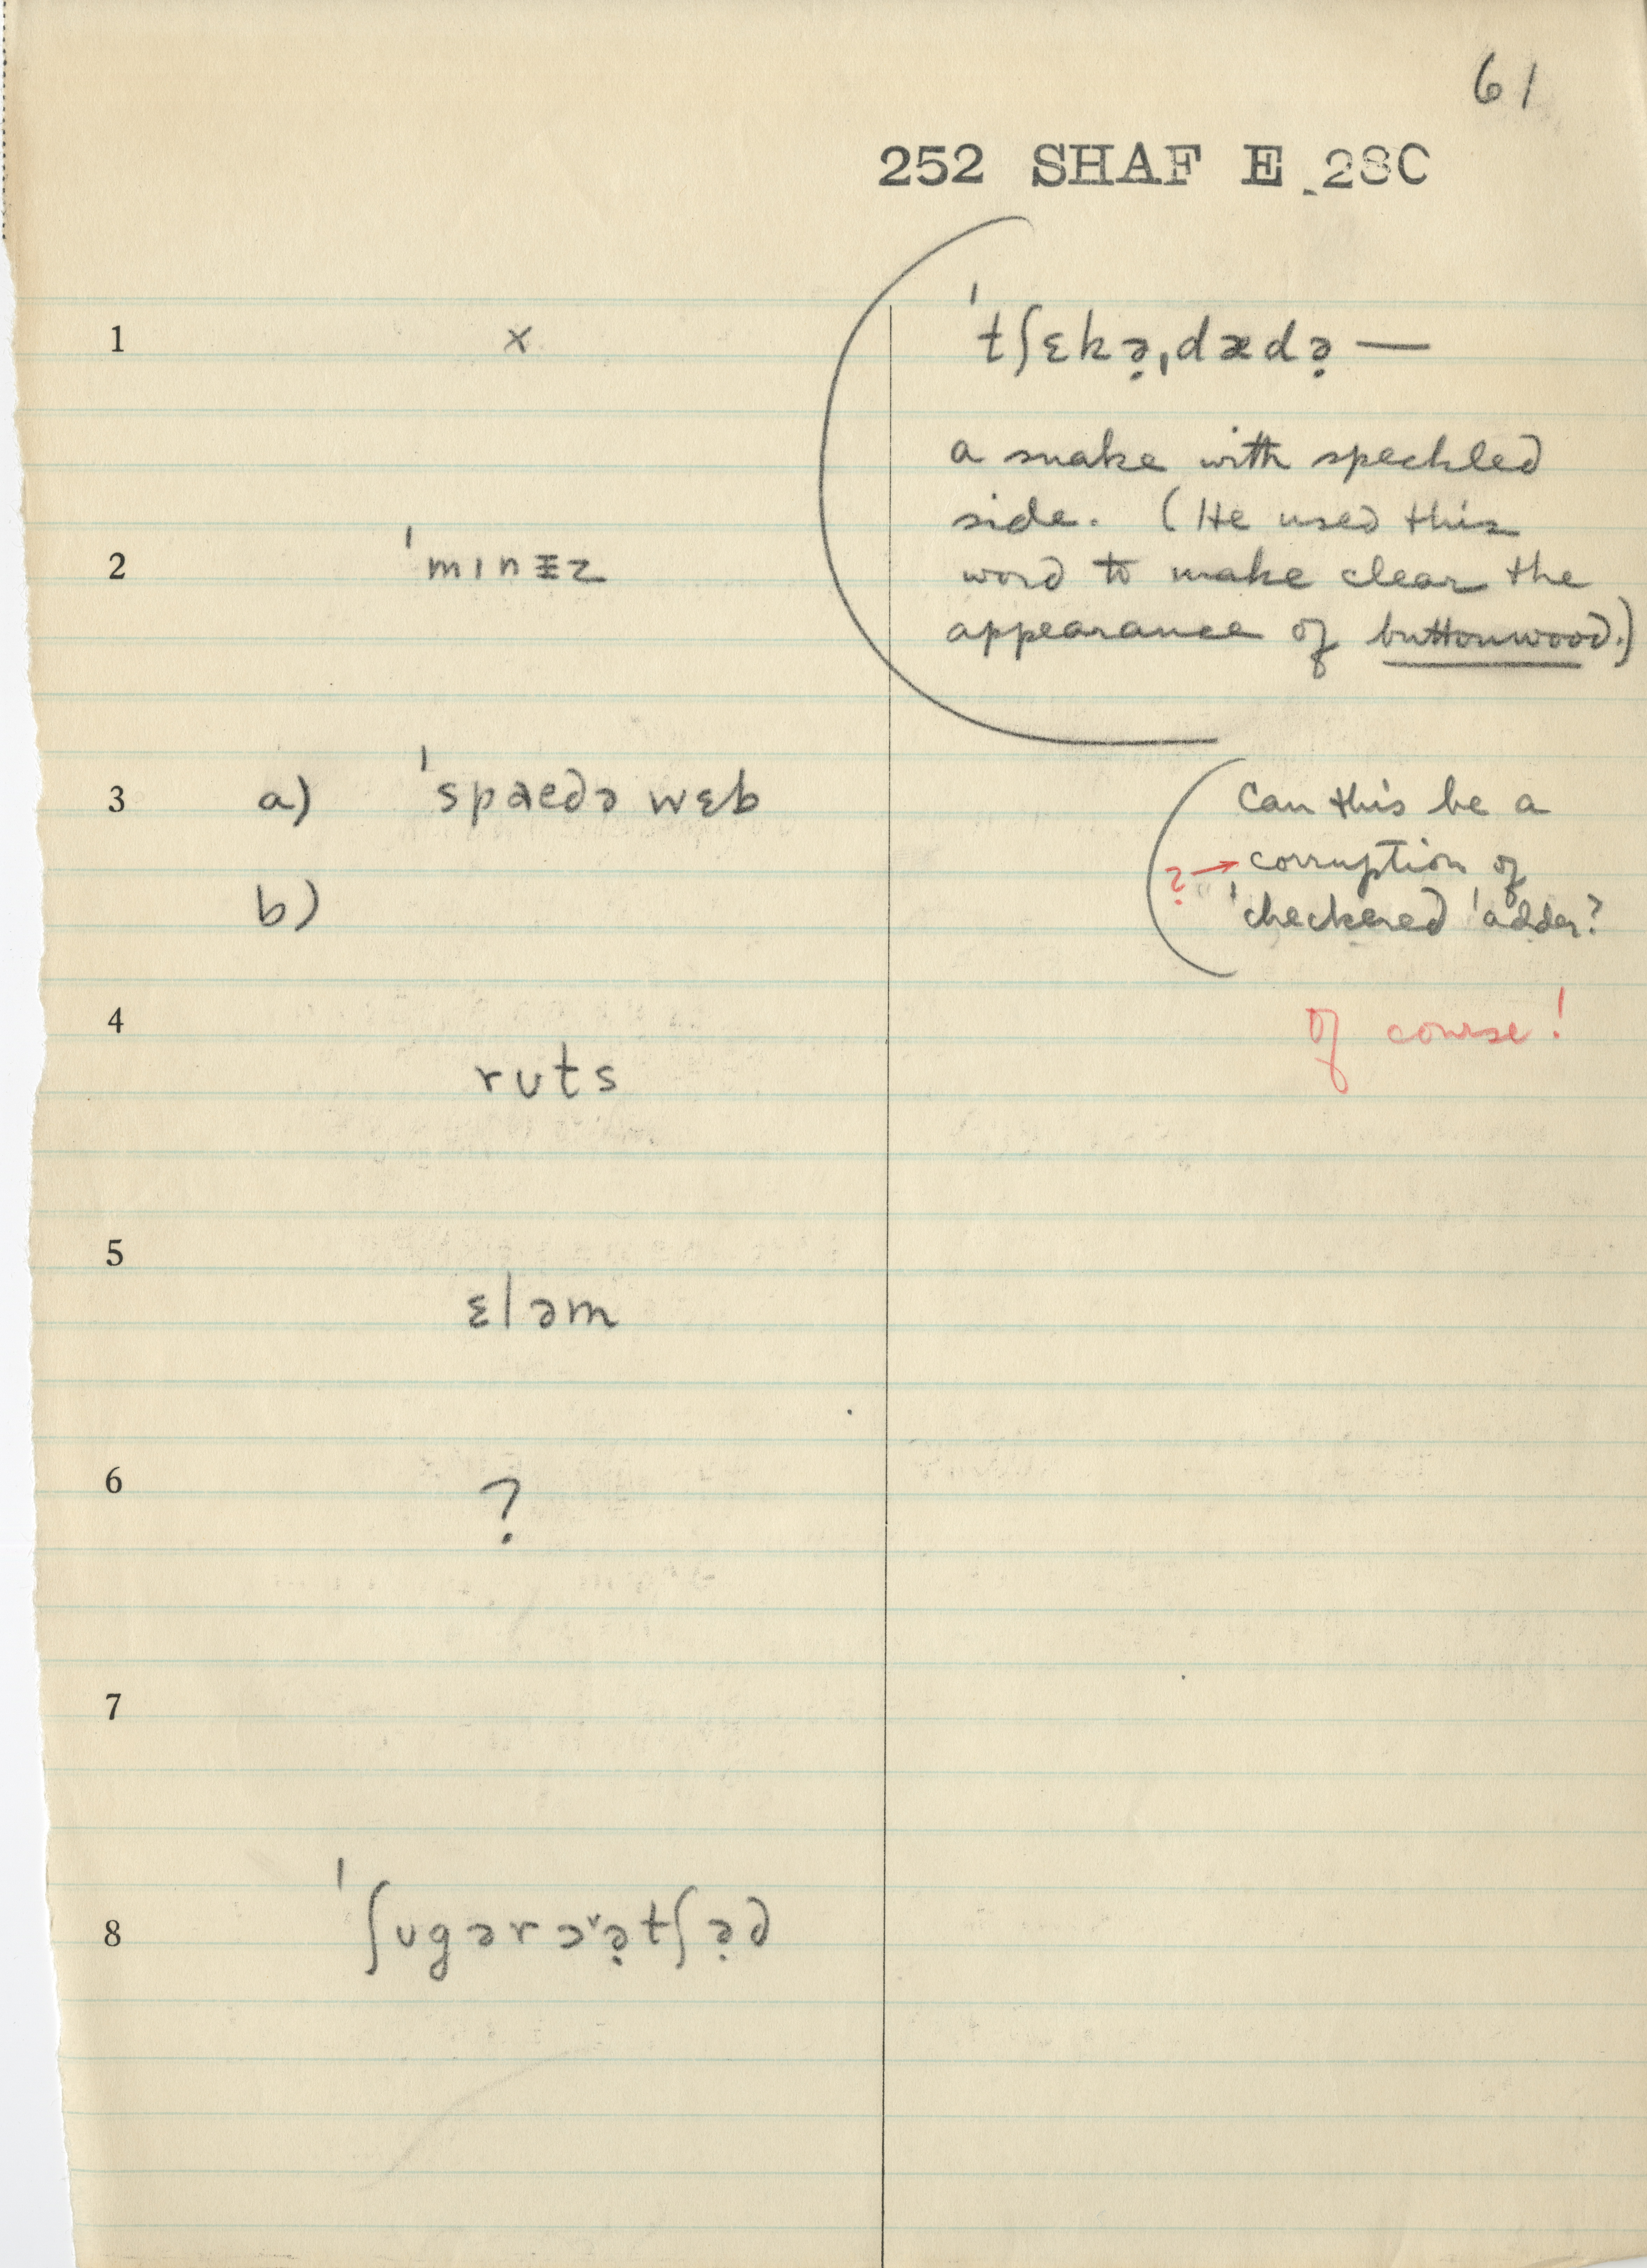 61
252 SHAF E 28C
1 x
ˈtʃɛkə̣ˌdædə̣ —
a snake with speckled
side. (He used this
word to make clear the
appearance of buttonwood.)
2 ˈmɪnɪ̵z
3 a) ˈspaedə wɛb
b)
Can this be a
? → corruption of
ˈcheckered ˈadder?
of course!
4
rʊts
5
ɛləm
6 ?
7
8 ˈʃʊgər ɔ˅ə̣tʃə̣d